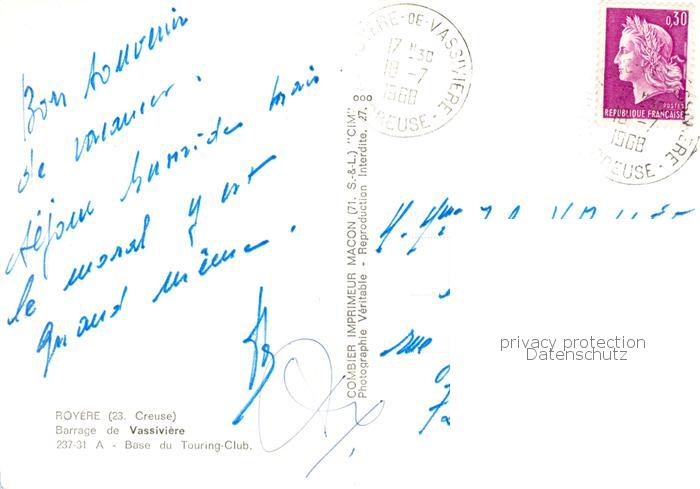 Bon souvenir
de vacances.
séjour humide mais
le moral y est
quand même.
ROYÈRE (23. Creuse)
Barrage de Vassivière
237-31 A - Base du Touring-Club.
COMBIER IMPRIMEUR MACON (71. S.-&-L.) "CIM"
Photographie Véritable - Reproduction Interdite. 27.
ROYÈRE-DE-VASSIVIÈRE
17 H30
18-7
1968
CREUSE
0,30
POSTES
REPUBLIQUE FRANÇAISE
18-7
1968
CREUSE
rue
privacy protection
Datenschutz